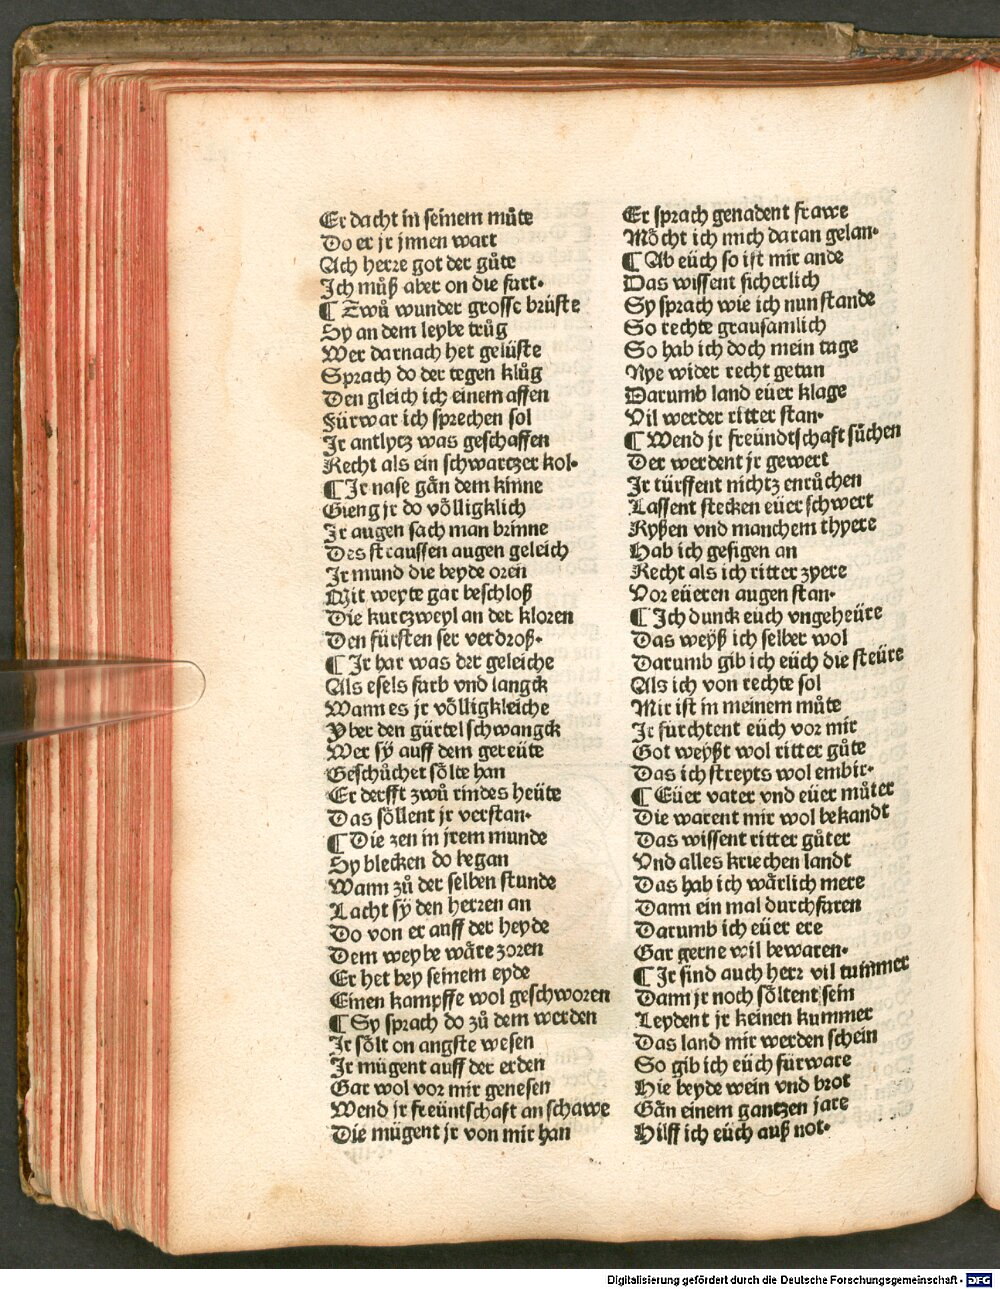 Er dacht in seinem můte
Do er jr jnnen wart
Ach herre got der gůte
Ich můß aber on die fart·
¶ Zwů wunder grosse brüste
Sy an dem leybe trůg
Wer darnach het gelüste
Sprach do der tegen klůg
Den gleich ich einem affen
Fürwar ich sprechen sol
Ir antlytz was geschaffen
Recht als ein schwartzer kol·
¶ Ir nase gãn dem kinne
Gieng jr do völligklich
Ir augen sach man brinne
Des straussen augen geleich
Ir mund die beyde oren
Mit weyte gar beschloß
Die kurtzweyl an der kloren
Den fürsten ser verdroß·
¶ Ir har was der geleiche
Als esels farb vnd langck
Wann es jr völligkleiche
Yber den gürtel schwangck
Wer sÿ auff dem gereüte
Geschůchet sölte han
Er derfft zwů rindes heüte
Das söllent jr verstan·
¶ Die zen in jrem munde
Sy blecken do began
Wann zů der selben stunde
Lacht sÿ den herren an
Do von er auff der heyde
Dem weybe wäre zoren
Er het bey seinem eyde
Einen kampffe wol geschworen
¶ Sy sprach do zů dem werden
Ir sölt on angste wesen
Ir mügent auff der erden
Gar wol vor mir genesen
Wend jr freüntschaft an schawe
Die mügent jr von mir han
Er sprach genadent frawe
Möcht ich mich daran gelan·
¶ Ab eüch so ist mir ande
Das wissent sicherlich
Sy sprach wie ich nun stande
So rechte grausamlich
So hab ich doch mein tage
Nye wider recht getan
Darumb land eüer klage
Vil werder ritter stan·
¶ Wend jr freündtschaft sůchen
Der werdent jr gewert
Ir türffent nichtz enrůchen
Lassent stecken eüer schwert
Ryßen vnd manchem thyere
Hab ich gesigen an
Recht als ich ritter zyere
Vor eüeren augen stan·
¶ Ich dunck euch vngeheüre
Das weyß ich selber wol
Darumb gib ich eüch die steüre
Als ich von rechte sol
Mir ist in meinem můte
Ir furchtent euch vor mir
Got weyßt wol ritter gůte
Das ich streyts wol embir·
¶ Eüer vater vnd eüer můter
Die warent mir wol bekandt
Das wissent ritter gůter
Vnd alles kriechen landt
Das hab ich wärlich mere
Dann ein mal durchfaren
Darumb ich eüer ere
Gar gerne wil bewaren·
¶ Ir sind auch herr vil tummer
Dann jr noch söltent sein
Leydent jr keinen kummer
Das land mir werden schein
So gib ich eüch fürware
Hie beyde wein vnd brot
Gãn einem gantzen jare
Hilff ich eüch auß not·
Digitalisierung gefördert durch die Deutsche Forschungsgemeinschaft - DFG